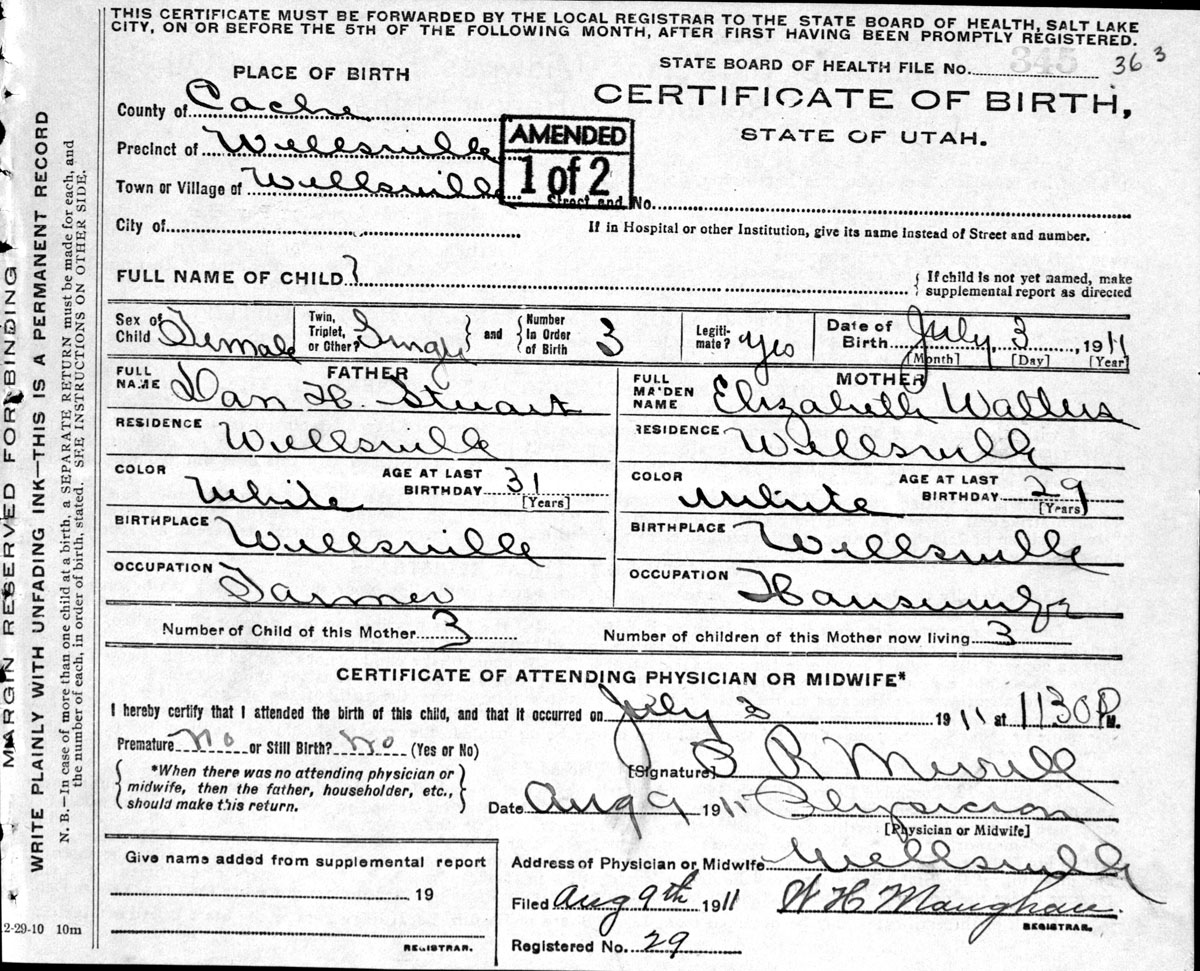 THIS CERTIFICATE MUST BE FORWARDED BY THE LOCAL REGISTRAR TO THE STATE BOARD OF HEALTH, SALT LAKE
CITY, ON OR BEFORE THE 5TH OF THE FOLLOWING MONTH, AFTER FIRST HAVING BEEN PROMPTLY REGISTERED.
STATE BOARD OF HEALTH FILE No. 345 363
PLACE OF BIRTH
CERTIFICATE OF BIRTH,
STATE OF UTAH.
County of Cache
Precinct of Wellsville
AMENDED
1 of 2
Town or Village of Wellsville Street and No.
City of If in Hospital or other Institution, give its name instead of Street and number.
FULL NAME OF CHILD } { If child is not yet named, make
supplemental report as directed
Sex of Child Female Twin, Triplet, or Other? Single } and { Number in Order of Birth 3 Legiti-mate? Yes Date of Birth July 3, 1911
[Month] [Day] [Year]
FATHER MOTHER
FULL NAME Dan H. Stuart FULL MAIDEN NAME Elizabeth Walters
RESIDENCE Wellsville RESIDENCE Wellsville
COLOR White AGE AT LAST BIRTHDAY 31 [Years] COLOR White AGE AT LAST BIRTHDAY 29 [Years]
BIRTHPLACE Wellsville BIRTHPLACE Wellsville
OCCUPATION Farmer OCCUPATION
Number of Child of this Mother 3 Number of children of this Mother now living 3
CERTIFICATE OF ATTENDING PHYSICIAN OR MIDWIFE*
I hereby certify that I attended the birth of this child, and that it occurred on July 3 1911 at 1130 P M.
Premature No or Still Birth? No (Yes or No)
{ *When there was no attending physician or
midwife, then the father, householder, etc.,
should make this return. }
[Signature] B R Merrill
Date Aug 9 1911 Physician
[Physician or Midwife]
Give name added from supplemental report
19
REGISTRAR.
Address of Physician or Midwife Wellsville
Filed Aug 9th 1911 W H Maughan.
REGISTRAR.
Registered No. 29
MARGIN RESERVED FOR BINDING
WRITE PLAINLY WITH UNFADING INK—THIS IS A PERMANENT RECORD
N. B.—In case of more than one child at a birth, a SEPARATE RETURN must be made for each, and
the number of each, in order of birth, stated. SEE INSTRUCTIONS ON OTHER SIDE.
2-29-10 10m